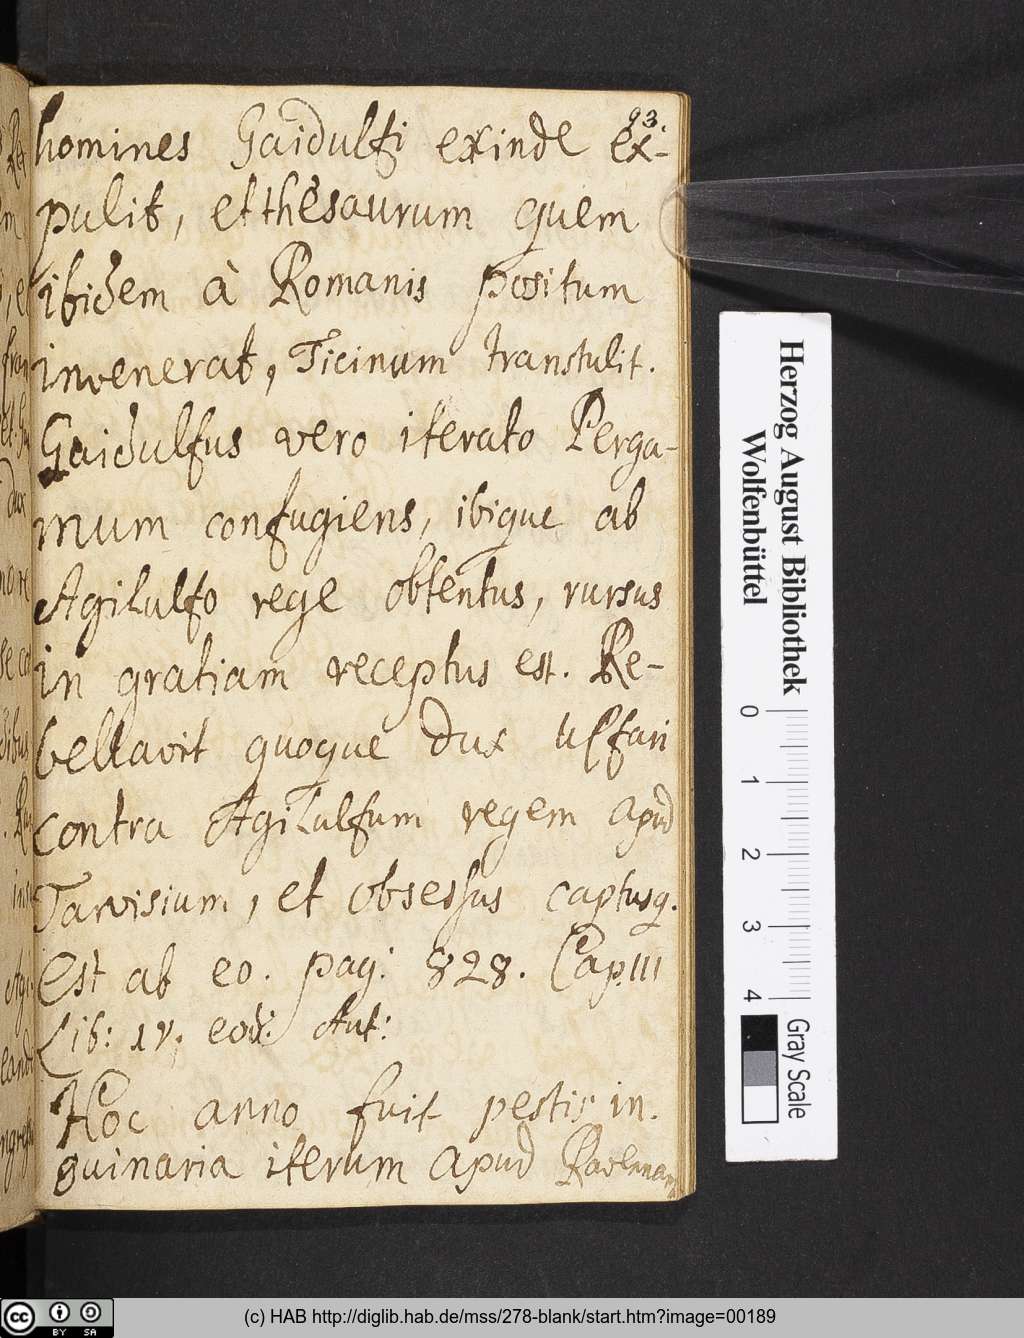 93.
homines Gaidulfi exinde ex-
pulit, et thesaurum quem
ibidem à Romanis positum
invenerat, Ticinum transtulit.
Gaidulfus vero iterato Perga-
mum confugiens, ibique ab
Agilulfo rege obtentus, rursus
in gratiam receptus est. Re-
bellavit quoque dux Ulfari
contra Agilulfum regem apud
Tarvisium, et obsessus captusq.
Est ab eo. pag: 828. Cap: III
Lib: IV. eod: Aut:
Hoc anno fuit pestis in-
guinaria iterum apud Ravennam
Herzog August Bibliothek
Wolfenbüttel
0 1 2 3 4
Gray Scale
cc BY SA
(c) HAB http://diglib.hab.de/mss/278-blank/start.htm?image=00189